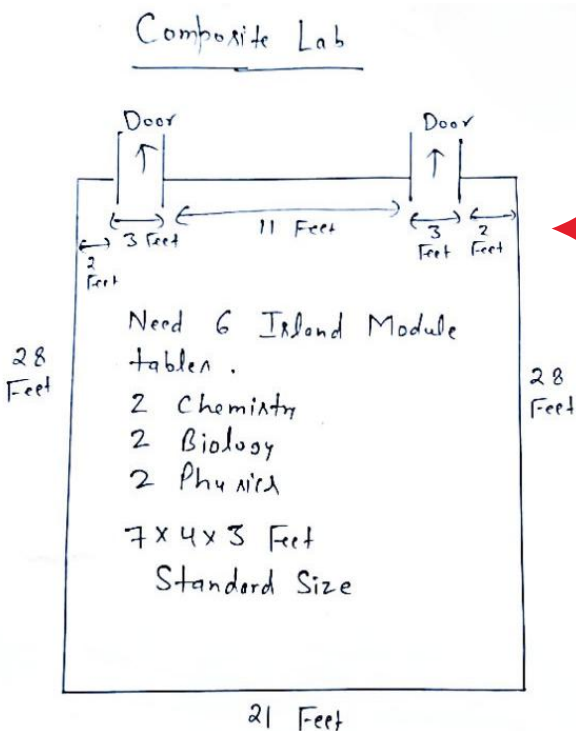 Composite Lab
Door
Door
2 Feet
3 Feet
11 Feet
3 Feet
2 Feet
Need 6 Island Module
tables.
2 Chemistry
2 Biology
2 Physics
7 x 4 x 3 Feet
Standard Size
28 Feet
28 Feet
21 Feet